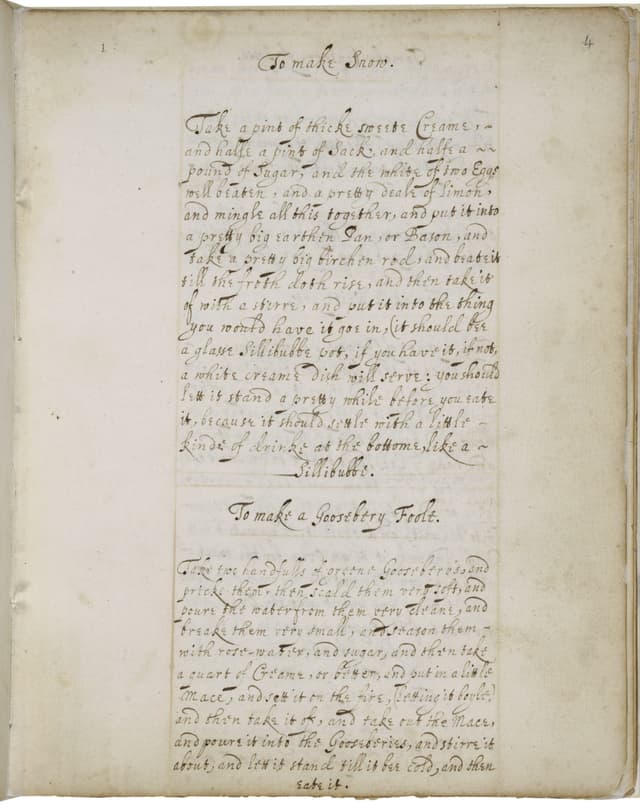 1
4
To make Snow.
Take a pint of thicke sweete Creame,
and halfe a pint of Sack, and halfe a
pound of Sugar, and the white of two Eggs
well beaten, and a pretty deale of Limon,
and mingle all this together, and put it into
a pretty big earthen Pan, or Bason, and
take a pretty big birchen rod, and beate it
till the froth doth rise, and then take it
of with a stirre, and put it into the thing
you would have it goe in, (it should bee
a glasse Sillibubbe pot, if you have it, if not,
a white creame dish will serve: you should
lett it stand a pretty while before you eate
it, because it should settle with a little
kinde of drinke at the bottome, like a
Sillibubbe.
To make a Goosebery Foole.
Take two handfulls of greene Gooseberys, and
pricke them, then scald them very soft, and
poure the water from them very cleane, and
breake them very small, and season them
with rose-water, and sugar, and then take
a quart of Creame, or better, and put in a little
Mace, and sett it on the fire, (letting it boyle)
and then take it of, and take out the Mace,
and powre it into the Gooseberies, and stirre it
about, and lett it stand till it bee cold, and then
eate it.